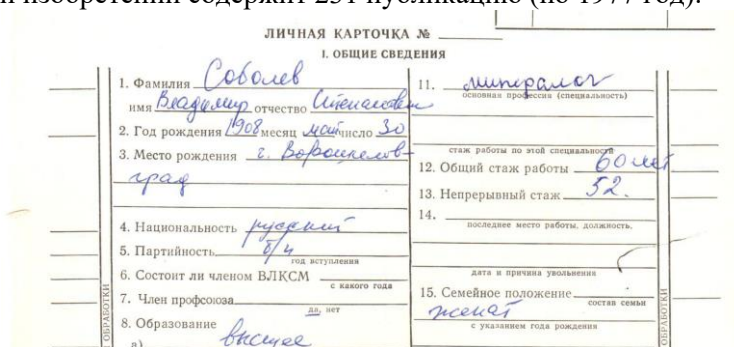 и изобретений содержит 251 публикацию (по 1977 год).
ЛИЧНАЯ КАРТОЧКА №
I. ОБЩИЕ СВЕДЕНИЯ
1. Фамилия Соболев
имя Владимир отчество Степанович
2. Год рождения 1908 месяц май число 30
3. Место рождения г. Ворошилов-
град
4. Национальность русский
5. Партийность б/ч
год вступления
6. Состоит ли членом ВЛКСМ
с какого года
7. Член профсоюза
да, нет
8. Образование высшее
а)
11. минералог
основная профессия (специальность)
стаж работы по этой специальности
12. Общий стаж работы 60 лет
13. Непрерывный стаж 52.
14.
последнее место работы, должность,
дата и причина увольнения
15. Семейное положение
состав семьи
женат
с указанием года рождения
ОБРАБОТКИ
ОБРАБОТКИ